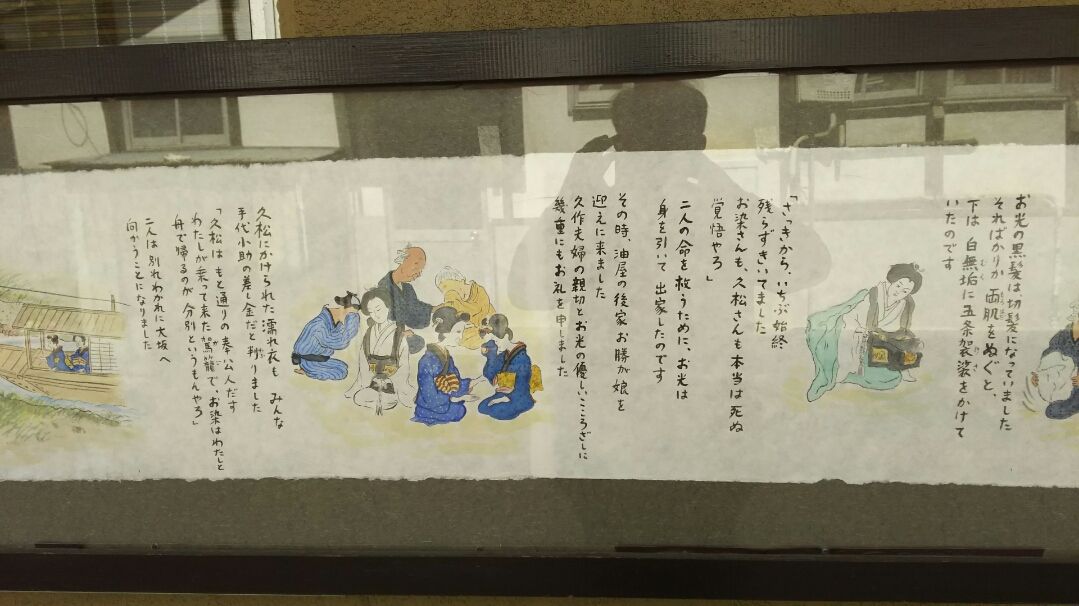 お光の黒髪は切髪になっていました
そればかりか両肌をぬぐと、
下は白無垢に五条袈裟をかけて
いたのです
「さっきから、いちぶ始終
残らずきいてました
お染さんも、久松さんも本当は死ぬ
覚悟やろ」
二人の命を救うために、お光は
身を引いて出家したのです
その時、油屋の後家お勝が娘を
迎えに来ました
久作夫婦の親切とお光の優しいこころざしに
幾重にもお礼を申しました
久松にかけられた濡れ衣も みんな
手代小助の差し金だと判りました
「久松は もと通りの奉公人だす
わたしが乗って来た駕籠で、お染はわたしと
舟で帰るのが分別というもんやろ」
二人は別れわかれに大坂へ
向かうことになりました